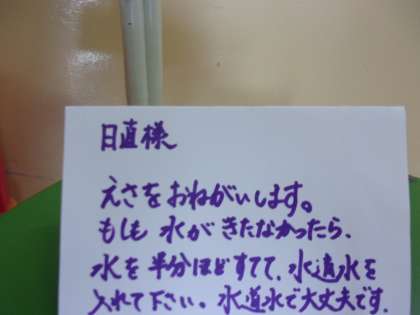 日直様
えさをおねがいします。
もしも 水が きたなかったら、
水を半分ほどすてて、水道水を
入れて下さい。水道水で大丈夫です。